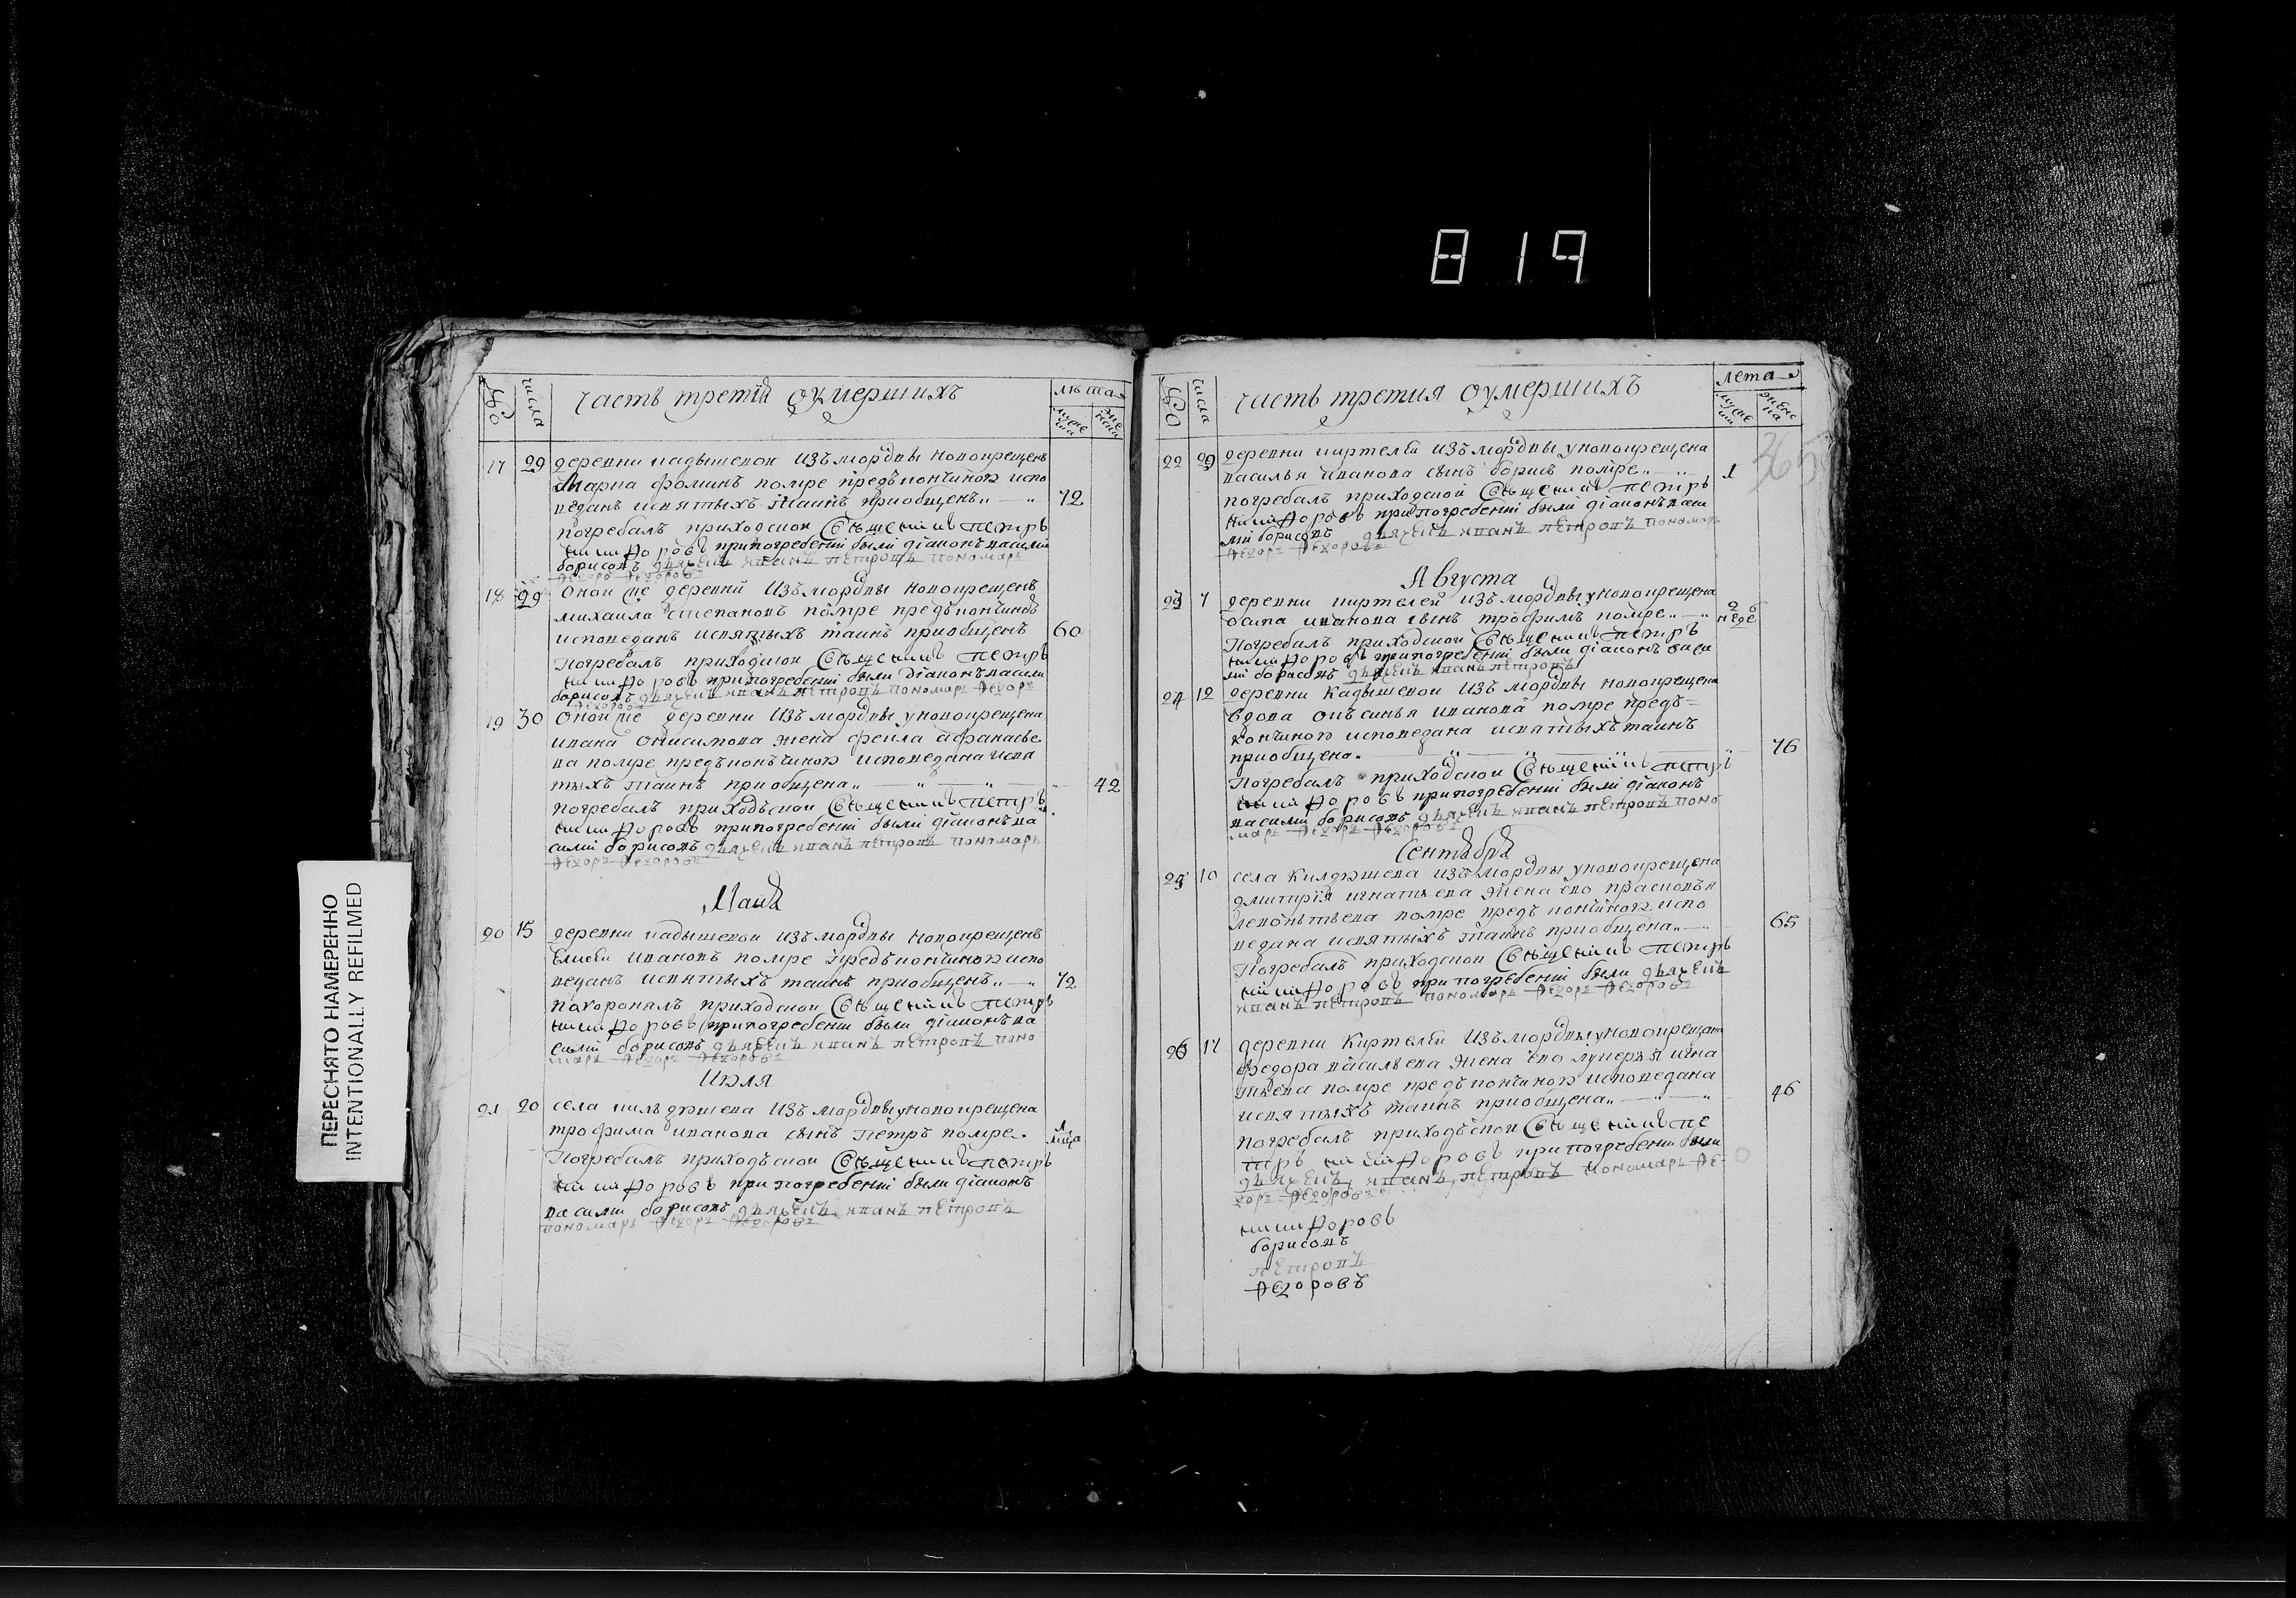 819
ПЕРЕСНЯТО НАМЕРЕННО
INTENTIONALLY REFILMED
числа
часть третия оумершихъ
лѣта
муже
жен
17 29 деревни кадышевои изъ мордвы новокрещенъ
Марка фоминъ помре предъ кончиною испо
веданъ исвятыхъ таинъ приобщенъ 72
погребалъ приходскои Священникъ петръ
никифоровъ при погребении были діаконъ василии
борисовъ дьячекъ иванъ петровъ пономарь
Федоръ Федоровъ
18 29 Онои же деревни изъ мордвы новокрещенъ
михаила степановъ помре предъ кончиною
исповеданъ исвятыхъ таинъ приобщенъ 60
Погребалъ приходскои Священникъ петръ
никифоровъ при погребении были діаконъ васили
борисовъ дьячекъ иванъ петровъ пономарь Федоръ
Федоровъ
19 30 Онои же деревни изъ мордвы у новокрещена
ивана Онисимова жена фекла афанасье
ва помре предъ кончиною исповедана исвя
тыхъ таинъ приобщена 42
погребалъ приходъскои Священникъ петръ
никифоровъ при погребении были діаконъ ва
силии борисовъ дьячекъ иванъ петровъ пономарь
Федоръ Федоровъ
Маия
20 15 деревни кадышевои изъ мордвы новокрещенъ
Елисеи ивановъ помре предъ кончиною испо
веданъ исвятыхъ таинъ приобщенъ 72
похоронялъ приходскои Священникъ петръ
никифоровъ при погребении были діаконъ ва
силии борисовъ дьячекъ иванъ петровъ поно
марь Федоръ Федоровъ
Июля
21 20 села килдюшева изъ мордвы у новокрещена
трофима иванова сынъ Петръ помре 1 мца
Погребалъ приходъскои Священникъ петръ
никифоровъ при погребении были діаконъ
василии борисовъ дьячекъ иванъ петровъ
пономарь Федоръ Федоровъ
числа
часть третия оумершихъ
лета
муже
жене
365
22 29 деревни киртели изъ мордвы у новокрещена
василья иванова сынъ борисъ помре 1
погребалъ приходскои Священникъ петръ
никифоровъ при погребении были діаконъ васи
лии борисовъ дьячекъ иванъ петровъ пономарь
Федоръ Федоровъ
Августа
23 7 деревни киртелеи изъ мордвы у новокрещена
Осипа иванова сынъ трофимъ помре 2 неде
Погребалъ приходскои Священникъ петръ
никифоровъ при погребении были діаконъ васи
лии борисовъ дьячекъ иванъ петровъ
24 12 деревни Кадышевои изъ мордвы новокрещена
Вдова иванова помре предъ
кончиною исповедана исвятыхъ таинъ
приобщена 76
Погребалъ приходскои Священникъ петръ
никифоровъ при погребении были діаконъ
василии борисовъ дьячекъ иванъ петровъ поно
марь Федоръ Федоровъ
Сентября
25 10 села Килдюшева изъ мордвы у новокрещена
дмитрия игнатьева жена ево прасковья
леонтьева помре предъ кончиною испо
ведана исвятыхъ таинъ приобщена 65
Погребалъ приходскои Священникъ петръ
никифоровъ при погребении были дьячекъ
иванъ петровъ пономарь Федоръ Федоровъ
26 17 деревни Киртели изъ мордвы у новокрещена
Федора васильева жена ево лукерья игна
тьева помре предъ кончиною исповедана
исвятыхъ таинъ приобщена 46
погребалъ приходъскои Священникъ пе
тръ никифоровъ при погребении были
дьячекъ иванъ петровъ пономарь Фе
доръ Федоровъ
никифоровъ
борисовъ
петровъ
Федоровъ